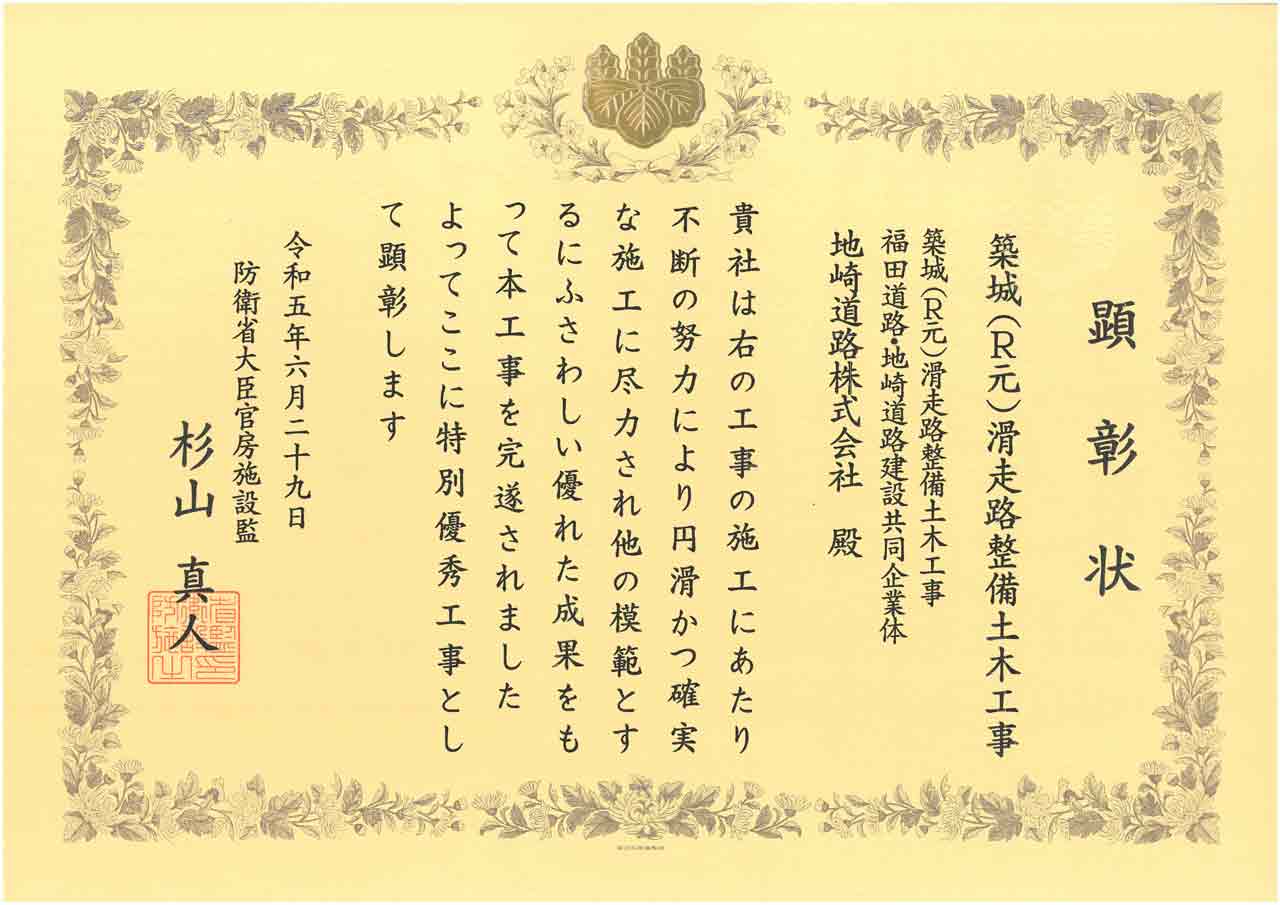 顕彰状
築城（R元）滑走路整備土木工事
築城（R元）滑走路整備土木工事
福田道路・地崎道路建設共同企業体
地崎道路株式会社 殿
貴社は右の工事の施工にあたり
不断の努力により円滑かつ確実
な施工に尽力され他の模範とす
るにふさわしい優れた成果をも
って本工事を完遂されました
よってここに特別優秀工事とし
て顕彰します
令和五年六月二十九日
防衛省大臣官房施設監
杉山 真人